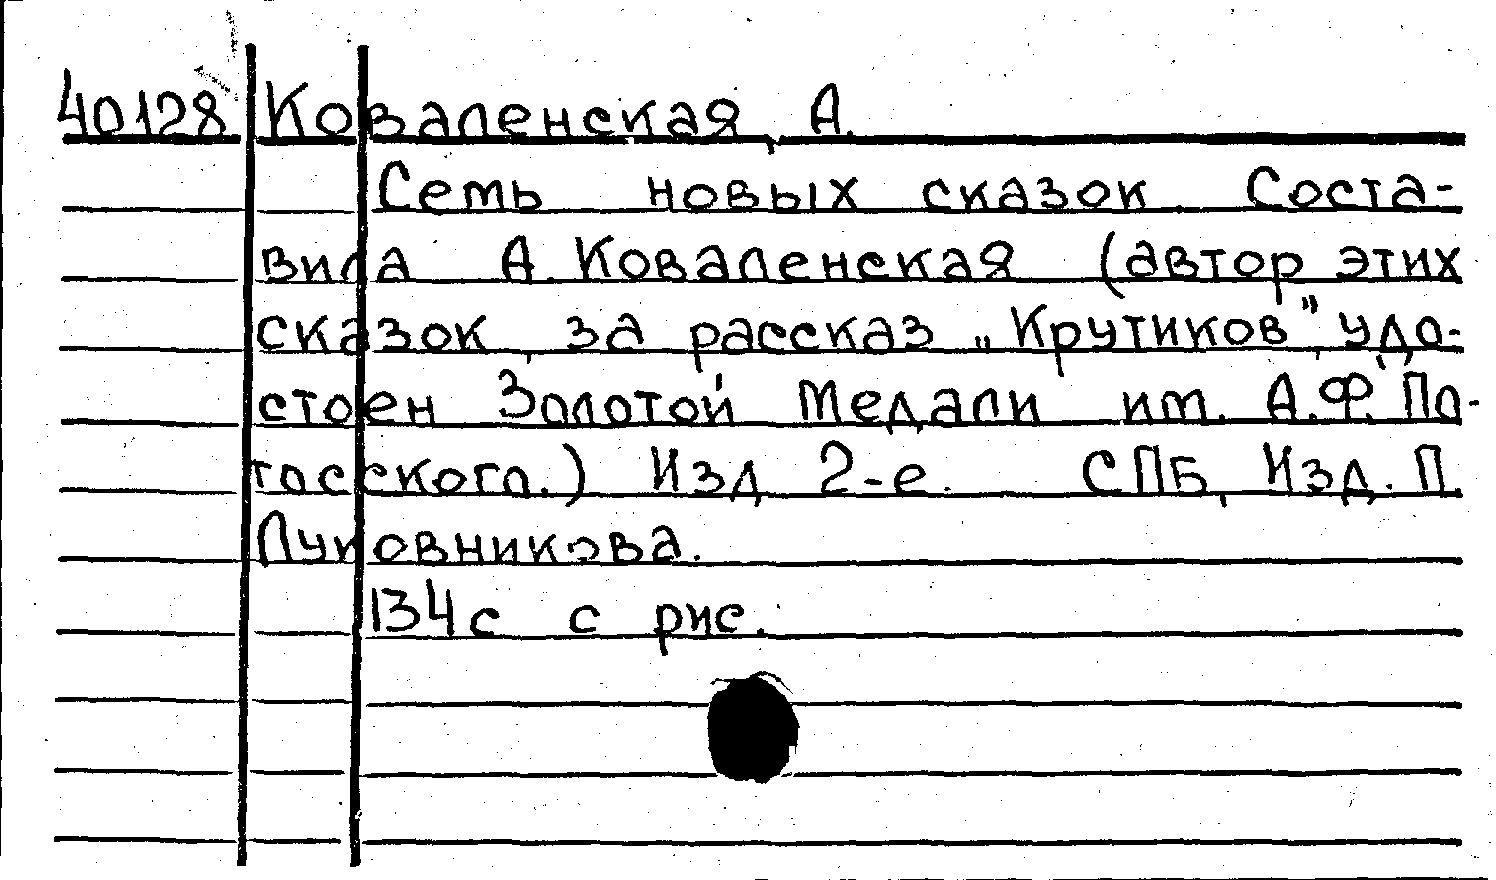 40128 Коваленская, А.
Семь новых сказок. Соста-
вила А. Коваленская (автор этих
сказок, за рассказ „Крутиков", удо-
стоен Золотой Медали им. А.Ф. По-
госского.) Изд. 2-е. СПБ, Изд. П.
Луковникова.
134 с с рис.